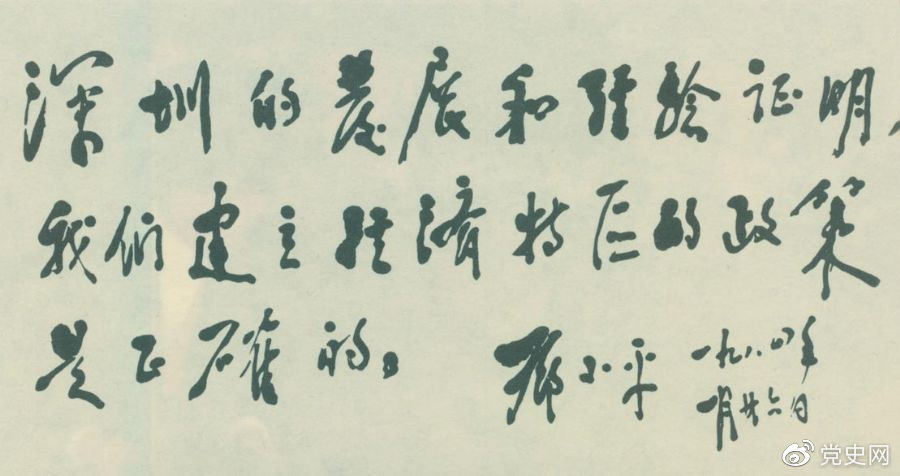 深圳的发展和经验证明，
我们建立经济特区的政策
是正确的。
邓小平 一九八四年
一月廿六日
党史网